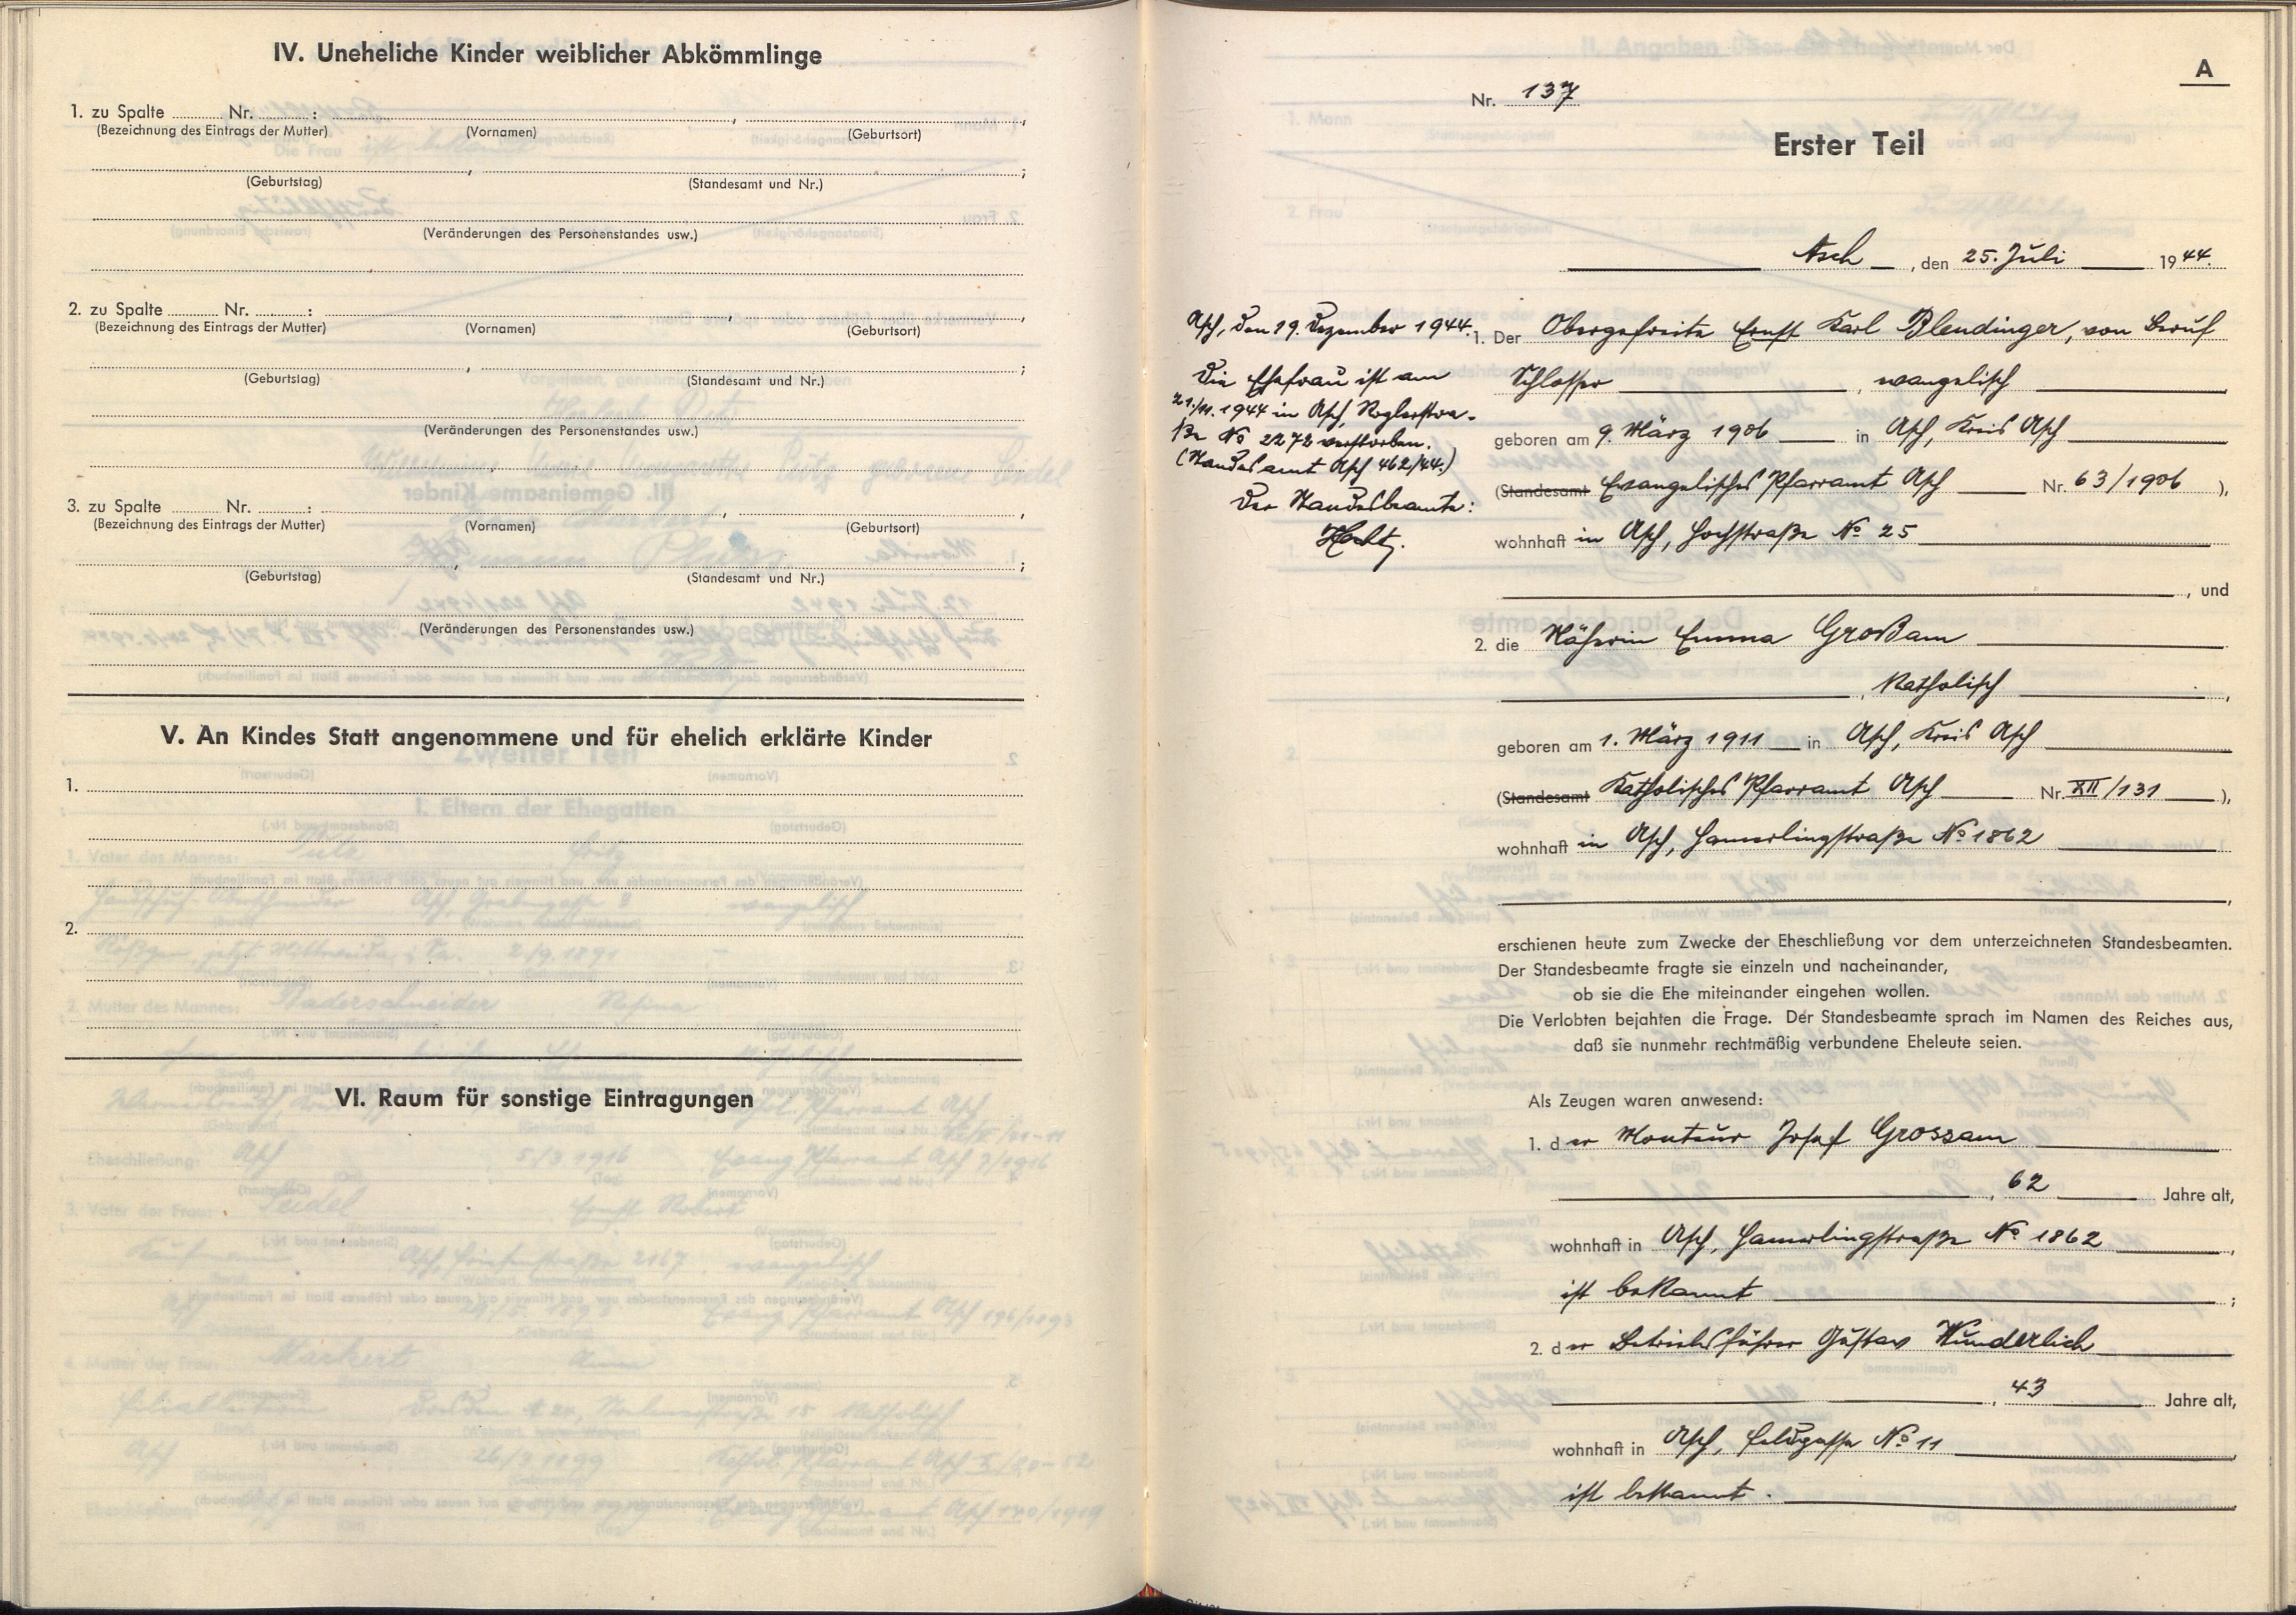 IV. Uneheliche Kinder weiblicher Abkömmlinge
1. zu Spalte ........ Nr. ........ :
(Bezeichnung des Eintrags der Mutter) (Vornamen) (Geburtsort)
(Geburtstag) (Standesamt und Nr.)
(Veränderungen des Personenstandes usw.)
2. zu Spalte ........ Nr. ........ :
(Bezeichnung des Eintrags der Mutter) (Vornamen) (Geburtsort)
(Geburtstag) (Standesamt und Nr.)
(Veränderungen des Personenstandes usw.)
3. zu Spalte ........ Nr. ........ :
(Bezeichnung des Eintrags der Mutter) (Vornamen) (Geburtsort)
(Geburtstag) (Standesamt und Nr.)
(Veränderungen des Personenstandes usw.)
V. An Kindes Statt angenommene und für ehelich erklärte Kinder
1.
2.
VI. Raum für sonstige Eintragungen
A
Nr. 137
Erster Teil
Asch, den 25. Juli 1944.
Asch, den 19. Dezember 1944.
Die Ehefrau ist am
21./11. 1944 in Asch, Roglerstra-
ße No 2272 verstorben.
(Standesamt Asch 462/44.)
Der Standesbeamte:
1. Der Obergefreite Ernst Karl Blendinger, von Beruf
Schlosser, evangelisch
geboren am 9. März 1906 in Asch, Kreis Asch
(Standesamt Evangelisches Pfarramt Asch Nr. 63/1906),
wohnhaft in Asch, Hochstraße No 25
, und
2. die Näherin Emma Großam
, katholisch,
geboren am 1. März 1911 in Asch, Kreis Asch
(Standesamt Katholisches Pfarramt Asch Nr. XII/131),
wohnhaft in Asch, Hamerlingstraße No 1862
,
erschienen heute zum Zwecke der Eheschließung vor dem unterzeichneten Standesbeamten.
Der Standesbeamte fragte sie einzeln und nacheinander,
ob sie die Ehe miteinander eingehen wollen.
Die Verlobten bejahten die Frage. Der Standesbeamte sprach im Namen des Reiches aus,
daß sie nunmehr rechtmäßig verbundene Eheleute seien.
Als Zeugen waren anwesend:
1. der Monteur Josef Grossam
, 62 Jahre alt,
wohnhaft in Asch, Hamerlingstraße No 1862,
ist bekannt;
2. der Betriebsführer Gustav Wunderlich
, 43 Jahre alt,
wohnhaft in Asch, Feldgasse No 11
ist bekannt.